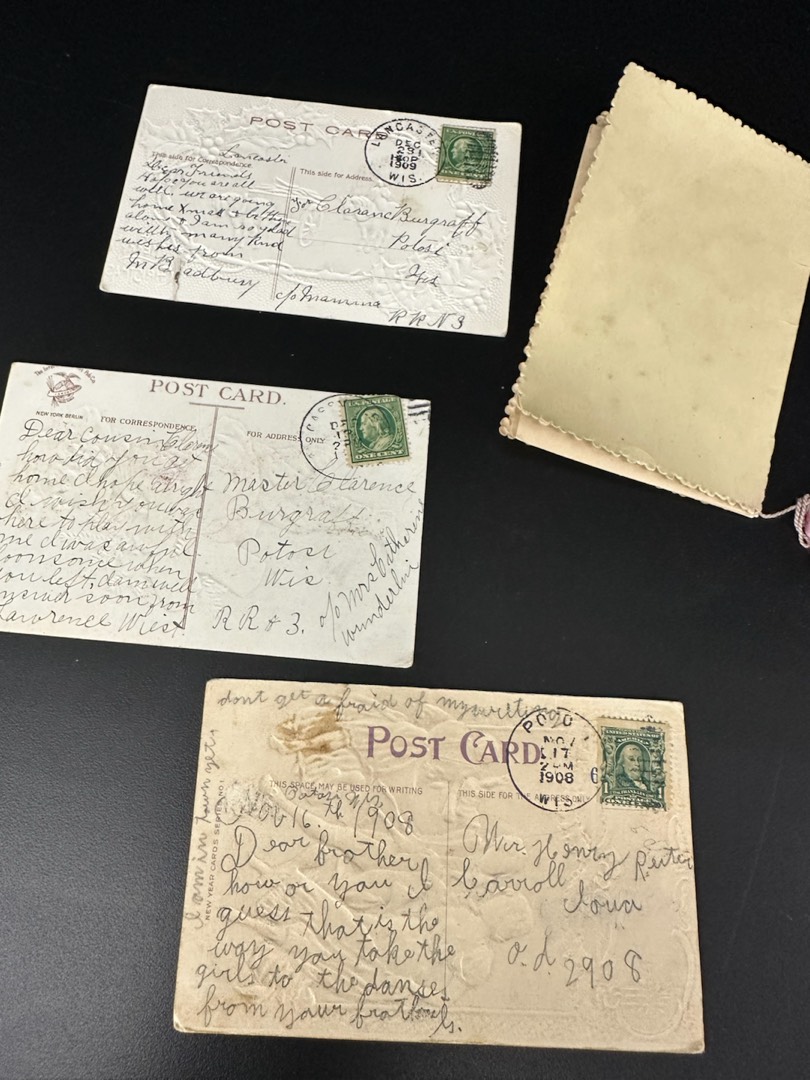 POST CARD
LANCASTER
DEC
23
1909
WIS.
U.S. POSTAGE
This side for Correspondence
This side for Address
Lancaster
Dear Friends
Hope you are all
well. we are going
home Xmas
along & I am so glad
with many kind
wishes from
M Bradbury
Claranc Burgraff
Potosi
Wis
c/o Mamma
R R N 3
POST CARD.
NEW YORK BERLIN
FOR CORRESPONDENCE
FOR ADDRESS ONLY
U.S. POSTAGE
ONE CENT
Dear Cousin
how did you get
home I hope alright
I wish you was
here to play with
me I was awful
loonsome when
you left,
answer soon from
Lawrence Wiest
Master Clarence
Burgraff
Potosi
Wis.
R R & 3.
c/o Mrs Catherine
Wunderlin
dont get a fraid of my writing
I am in town yet
POST CARD
THIS SPACE MAY BE USED FOR WRITING
THIS SIDE FOR THE ADDRESS ONLY
NEW YEAR CARDS SERIES NO1
NOV
17
1908
WIS
6
Potosi Wis
Nov 16 th 1908
Dear brother
how or you I
guess that is the
way you take the
girls to the danses
from your brother
Mr. Henry Reiter
Carroll
Iowa
2908